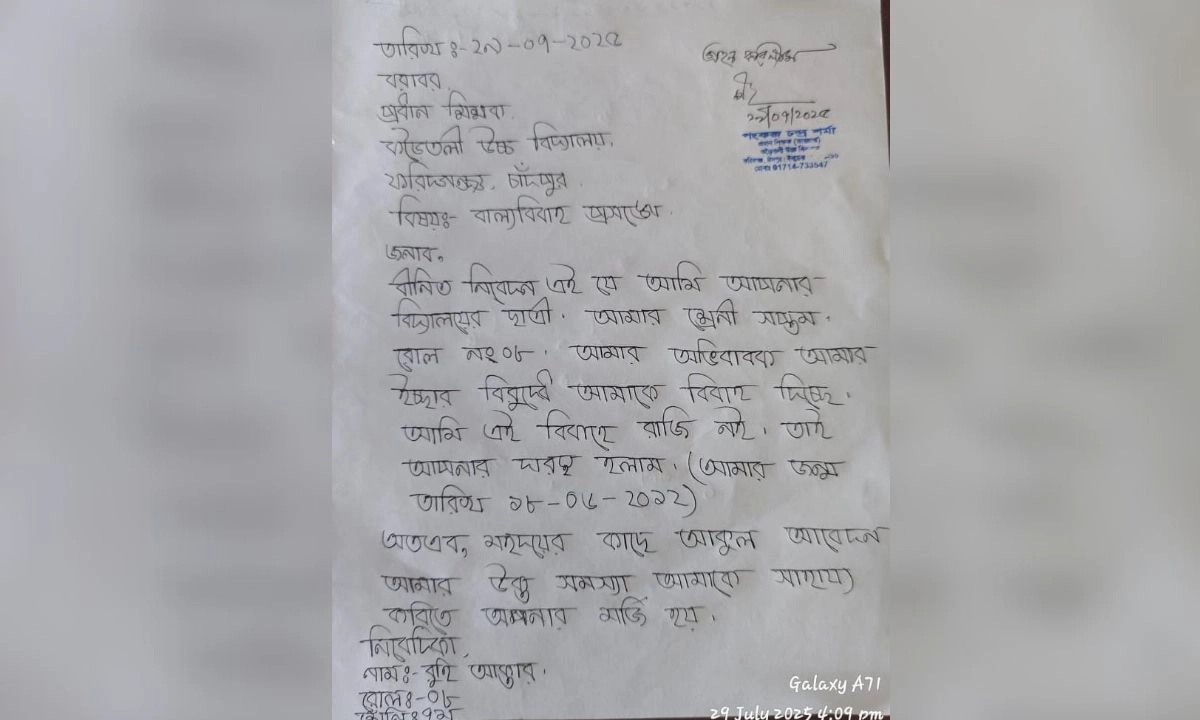 তারিখ ঃ- ২৯-০৭-২০২৫
বরাবর,
প্রধান শিক্ষক
উচ্চ বিদ্যালয়,
ফরিদগঞ্জ, চাঁদপুর.
বিষয়ঃ- বাল্যবিবাহ প্রসঙ্গে.
জনাব,
বীনিত নিবেদন এই যে আমি আপনার
বিদ্যালয়ের ছাত্রী. আমার শ্রেনী সপ্তম.
রোল নং ০৮. আমার অভিবাবক আমার
ইচ্ছার বিরুদ্ধে আমাকে বিবাহ দিচ্ছে.
আমি এই বিবাহে রাজি নই. তাই
আপনার দারস্থ হলাম. (আমার জন্ম
তারিখ ১৮-০৫-২০১২)
অতএব, মহদয়ের কাছে আকুল আবেদন
আমার উক্ত সমস্যা আমাকে সাহায্য
করিতে আপনার মর্জি হয়.
নিবেদিকা,
নাম:- রুহি আক্তার.
রোলঃ-০৮
২৯/০৭/২০২৫
01714-733547
Galaxy A71
29 July 2025 4:09 pm